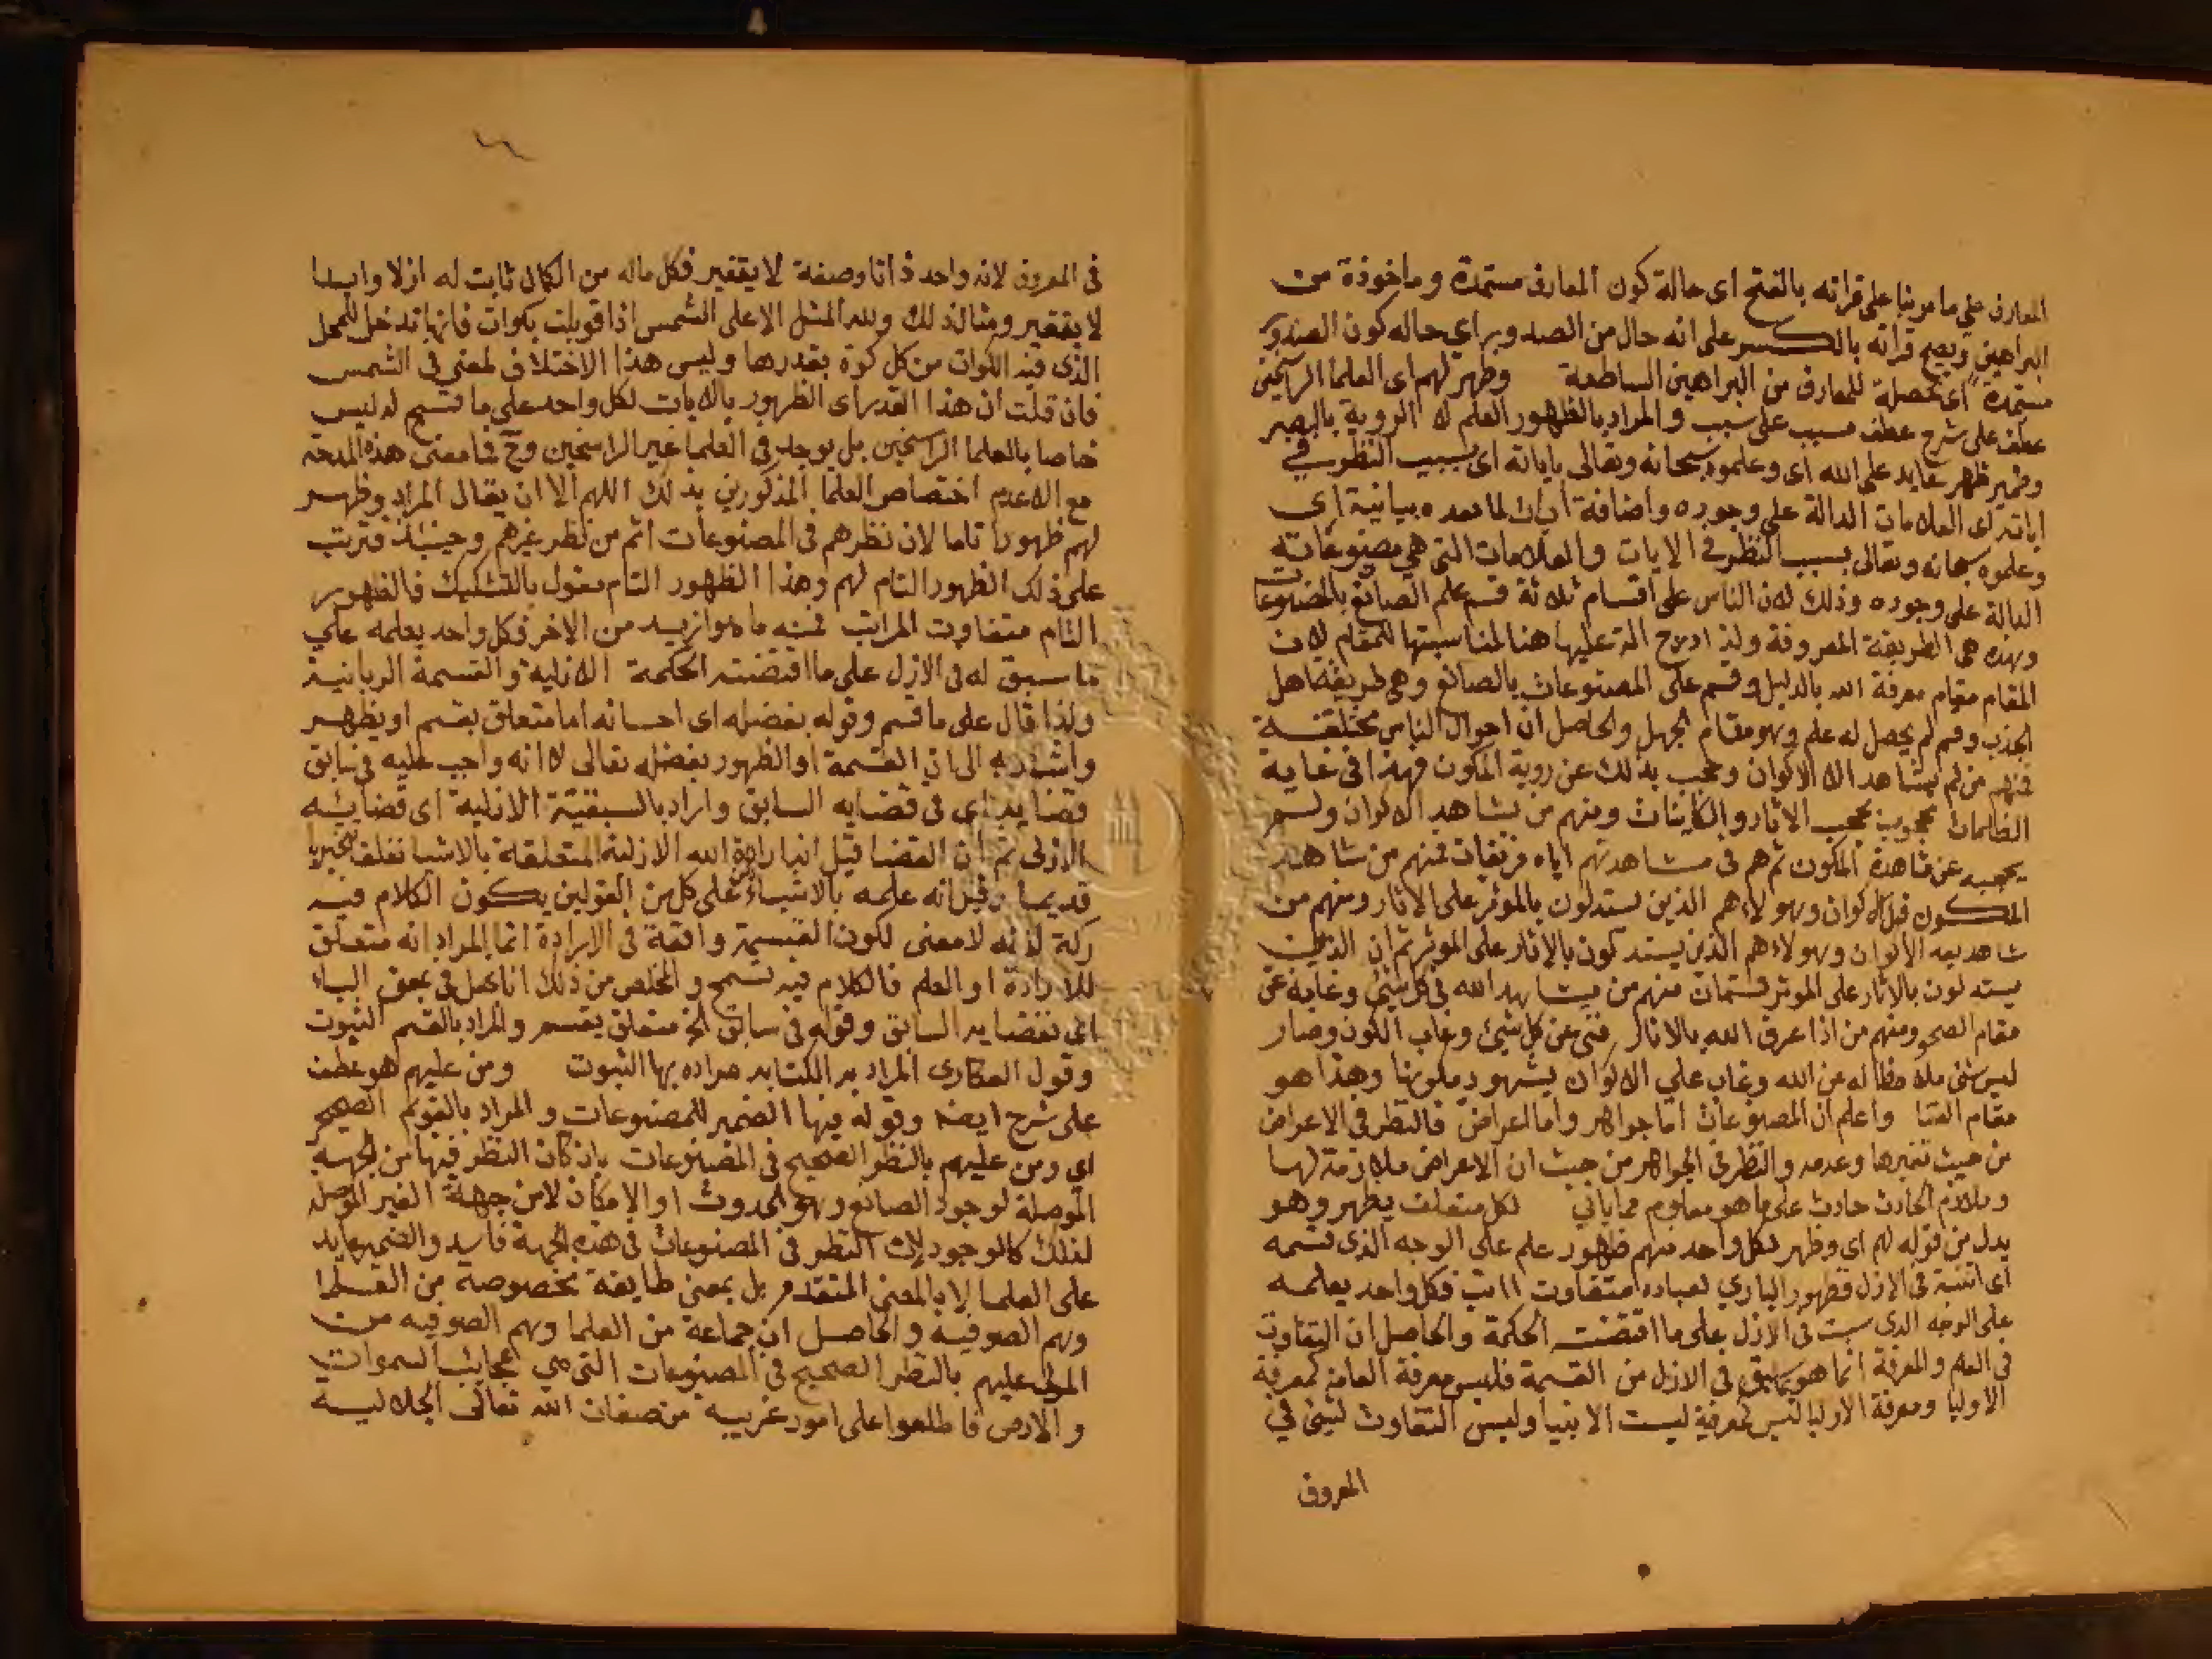 المعارف على ما مر بنا على قراته بالفتح اى حالة كون المعارف مستمدة وماخوذة من
البراهين ويصح قراته بالكسر على انه حال من الصدور اى حاله كون الصدور
مستمدة اى محصلة للمعارف من البراهين الساطعة وظهر لهم اى العلما الراسخين
عطف على شرح عطف مسبب على سبب والمراد بالظهور العلم لا الروية بالبصر
وضمير ظهر عايد على الله اى وعلموه سبحانه وتعالى باياته اى بسبب النظر في
اياته اى العلامات الدالة على وجوده واضافة ايات لما بعده بيانية اى
وعلموه سبحانه وتعالى بسبب النظر في الايات والعلامات التى هي مصنوعاته
الدالة على وجوده وذلك لان الناس على اقسام ثلاثة قسم علم الصانع بالمصنوعات
وهذه هى الطريقة المعروفة ولذا درج عليها هنا لمناسبتها للمقام لان
المقام مقام معرفة الله بالدليل وقسم علم المصنوعات بالصانع وهى طريقة اهل
الجذب وقسم لم يحصل له علم وهو مقام الجهل والحاصل ان احوال الناس مختلفة
فمنهم من لم يشاهد الا الاكوان وحجب بذلك عن روية المكون فهذا فى غاية
الظلمات محجوب بحجب الاثار والكاينات ومنهم من شاهد الاكوان ولم
يحجبه عن مشاهدة المكون ثم هم فى مشاهدتهم اياه فريقان فمنهم من شاهد
المكون قبل الاكوان وهولاء هم الذين يستدلون بالموثر على الاثار ومنهم من
شاهد بعد الاكوان وهولاء هم الذين يستدلون بالاثار على الموثر ثم ان الذين
يستدلون بالاثار على الموثر قسمان منهم من يشاهد الله فى كل شيئ وغايه عن
مقام الصحو ومنهم من اذا عرف الله بالاثار فنى عن كل شيئ وغاب الكون وصار
ليس شئ وغاب على الاكوان بشهود مكونها وهذا هو
مقام الفنا واعلم ان المصنوعات اما جواهر واما اعراض فالنظر فى الاعراض
من حيث تغيرها وعدمه والنظر فى الجواهر من حيث ان الاعراض ملازمة لها
وملازم الحادث حادث على ما هو معلوم مما ياتي لكل متعلق بظهر وهو
بدل من قوله لهم اى وظهر لكل واحد منهم ظهور علم على الوجه الذى قسمه
اى اثبته فى الازل فظهور البارى لعباده متفاوت فكل واحد يعلمه
على الوجه الذى فى الازل على ما اقتضته الحكمة والحاصل ان التفاوت
فى العلم والمعرفة انما هو فى الازل من القسمة فليس معرفة العامة كمعرفة
الاوليا ومعرفة الاوليا ليس كمعرفة الانبيا وليس التفاوت لشئ في
المعروف
فى المعروف لانه واحد ذاتا وصفة لا يتغير فكل ماله من الكمال ثابت له ازلا وابدا
لا يتغير ومثال ذلك ولله المثل الاعلى الشمس اذا قوبلت بكوات فانها تدخل للمحل
الذى فيه الكوات من كل كوة بقدرها وليس هذا الاختلاف لمعنى فى الشمس
فان قلت ان هذا القدر اى الظهور بالايات لكل واحد على ما قسم له ليس
خاصا بالعلما الراسخين بل يوجد فى العلما غير الراسخين وح فما معنى هذه المدحة
مع عدم اختصاص العلما المذكورين بذلك اللهم الا ان يقال المراد وظهر
لهم ظهورا تاما لان نظرهم فى المصنوعات اتم من نظر غيرهم وحينئذ فترتب
على ذلك الظهور التام لهم وهذا الظهور التام مقول بالتشكيك فالظهور
التام متفاوت المراتب فمنه ما هو ازيد من الاخر فكل واحد يعلمه على
ما سبق له فى الازل على ما اقتضته الحكمة الازلية والقسمة الربانية
ولذا قال على ما قسم وقوله بفضله اى احسانه اما متعلق بقسم او بظهر
واشار به الى ان القسمة او الظهور بفضله تعالى لا انه واجب عليه فى سابق
قضايه اى فى قضايه السابق واراد بالسبقية الازلية اى قضايئه
الازلى ثم ان القضا قيل انه ارادة الله الازلية المتعلقة بالاشيا تعلقا تنجيزيا
قديما وقيل انه علمه بالاشياء وعلى كل من القولين يكون الكلام فيه
ركة لانه لا معنى لكون القسمة واقعة فى الارادة انما المراد انه متعلق
للارادة او العلم فالكلام فيه تسمح والمخلص من ذلك ان تجعل فى بمعنى الباء
اى بقضايه السابق وقوله فى سابق الخ متعلق بقسم والمراد بالقسم الثبوت
وقول السكتاني المراد به الكتابه مراده بها الثبوت ومن عليهم هو عطف
على شرح ايضا وقوله فيها الضمير للمصنوعات والمراد بالقويم الصحيح
اي ومن عليهم بالنظر الصحيح فى المصنوعات بان كان النظر فيها من الجهة
الموصلة لوجود الصانع وهو الحدوث او الامكان لا من جهة الغير الموصلة
لذلك كالوجود لان النظر فى المصنوعات فى هذه الجهة فاسد والضمير عايد
على العلما لا بالمعنى المتقدم بل بمعنى طايفة مخصوصة من العلما
وهم الصوفية والحاصل ان جماعة من العلما وهم الصوفيه من
المولى عليهم بالنظر الصحيح فى المصنوعات التى هي عجائب السموات
والارض فاطلعوا على امور غريبة من صفات الله تعالى الجلالية